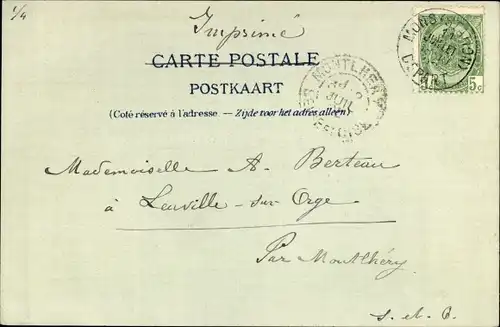 1/4
Imprimé
CARTE POSTALE
POSTKAART
(Coté réservé à l'adresse. — Zijde voor het adres alleen)
MONS (STATION)
DEPART
MONTLHERY
SEINE-ET-OISE
5c
Mademoiselle A. Berteau
à Leuville-sur-Orge
Par Montlhéry
S. et O.